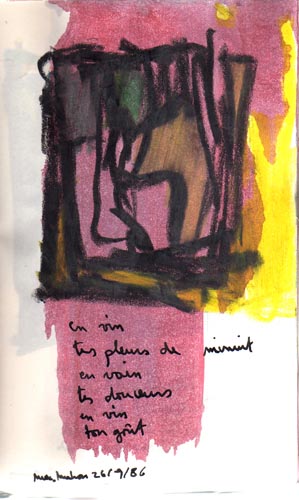 en vin
tes pleurs de minuit
en vain
tes douceurs
en vin
ton goût
26/9/86